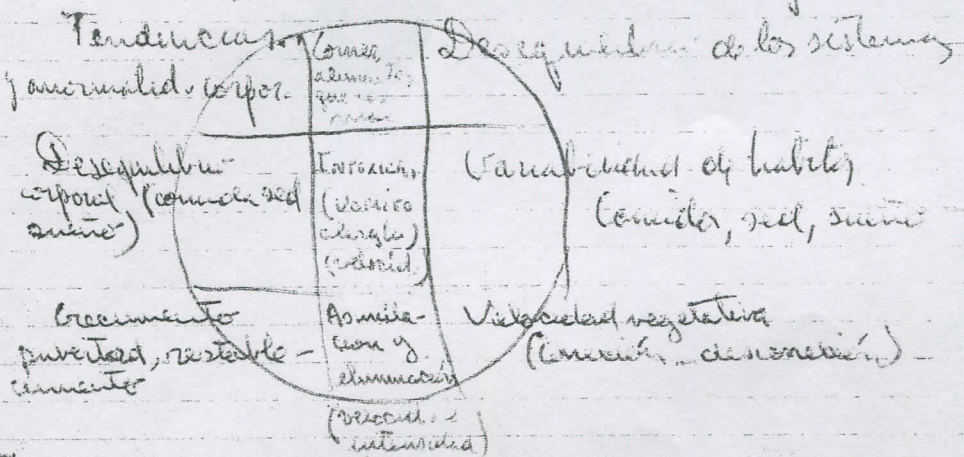 Tendencias
y anormalid. corpor.
Comer
alimentos
que
Desequilibrio de los sistemas
Desequilibrio
corporal (comida sed
sueño)
Intoxicac.
(vómico
alergia)
(velocid.)
Variabilidad de hábitos
comida, sed, sueño
Crecimiento
pubertad, restable-
cimiento
Asimila-
ción y
eliminación
(velocid. e
intensidad)
Velocidad vegetativa